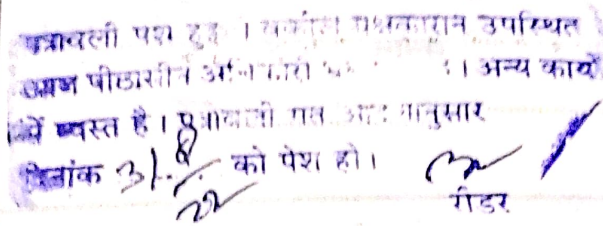 पत्रावली पेश हुई । वकील पक्षकारान उपस्थित
आज पीठासीन अधिकारी । अन्य कार्यो
में व्यस्त है । पत्रावली गत आज्ञानुसार
दिनांक 31.8.22 को पेश हो ।
रीडर